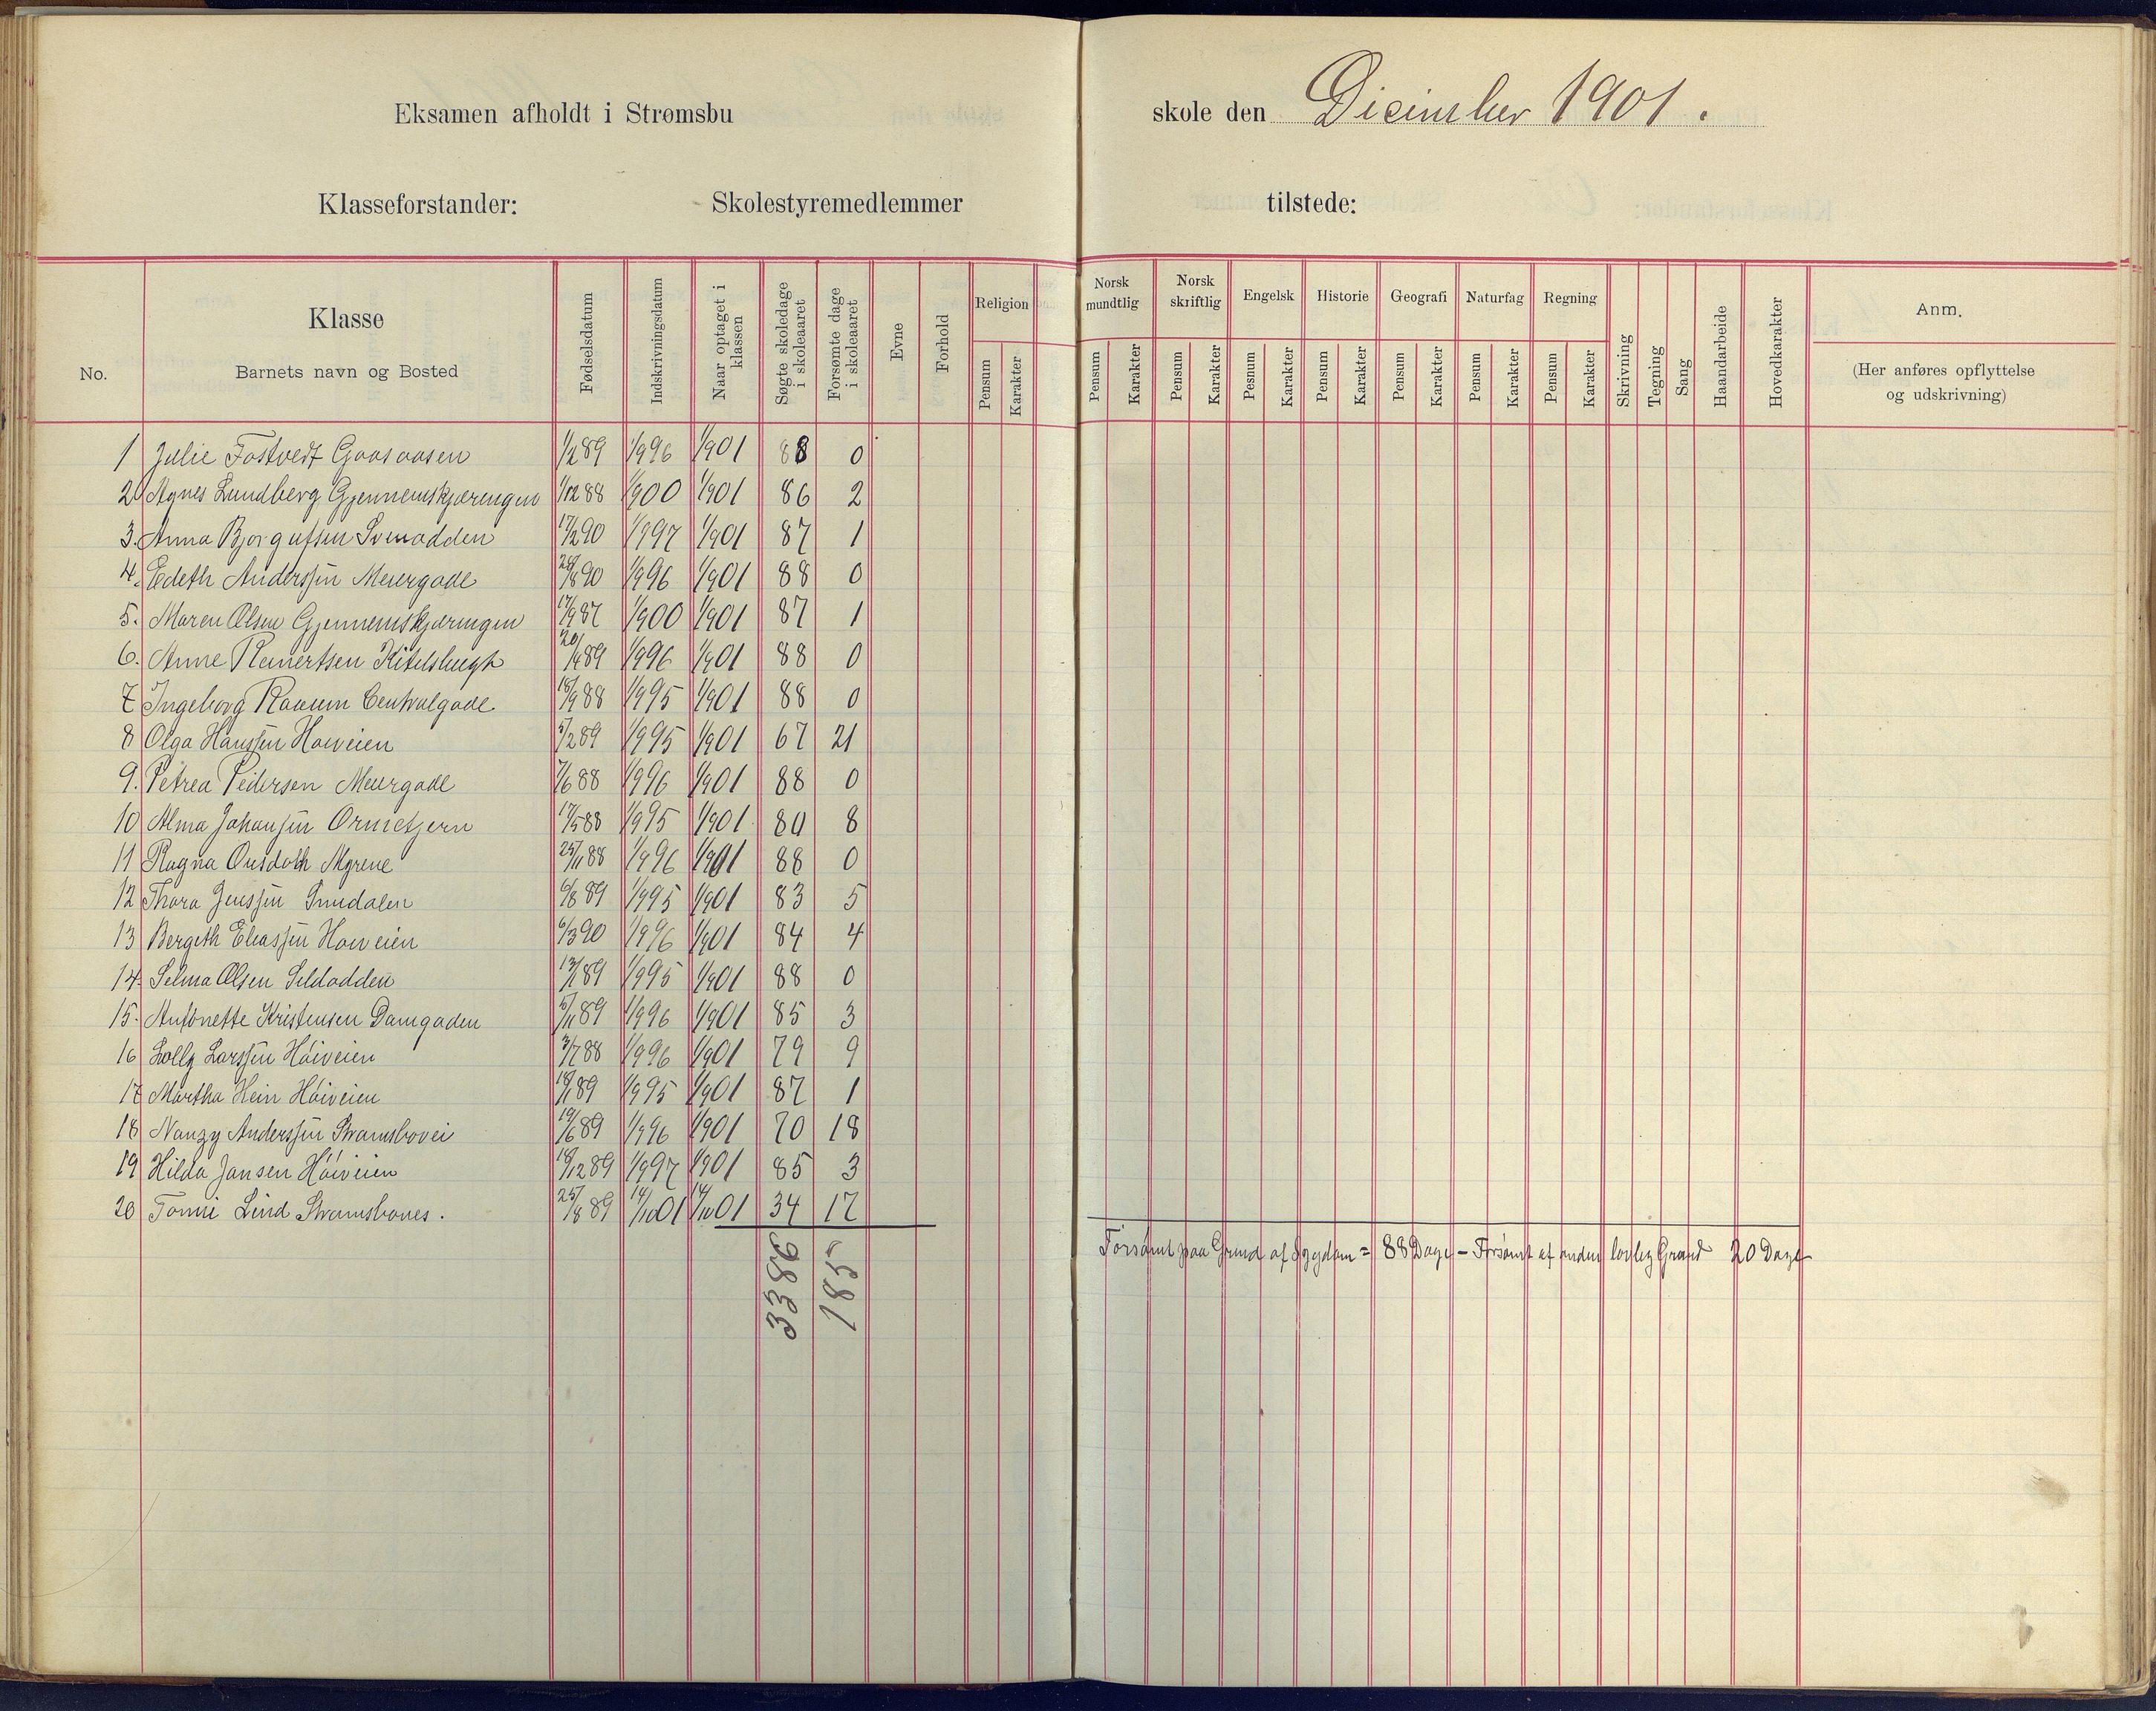 Eksamen afholdt i Strømsbu skole den Dicimber 1901.
Klasseforstander: Skolestyremedlemmer tilstede:
No. Klasse Barnets navn og Bosted Fødselsdatum Indskrivningsdatum Naar optaget i klassen Søgte skoledage i skoleaaret Forsømte dage i skoleaaret Evne Forhold Religion Norsk mundtlig Norsk skriftlig Engelsk Historie Geografi Naturfag Regning Skrivning Tegning Sang Haandarbeide Hovedkarakter Anm.
(Her anføres opflyttelse og udskrivning)
Pensum Karakter Pensum Karakter Pensum Karakter Pesnum Karakter Pensum Karakter Pensum Karakter Pensum Karakter Pensum Karakter
1 Julie Fostvedt Gaasaasen 1/2 89 1/9 96 1/9 01 88 0
2 Agnes Lundberg Gjennemskjæringen 1/12 88 1/9 00 1/9 01 86 2
3. Anna 17/2 90 1/9 97 1/9 01 87 1
4. Edeth Anderssen 28/8 90 1/9 96 1/9 01 88 0
5. Maren Olsen Gjennemskjæringen 17/9 87 1/9 00 1/9 01 87 1
6. Anne Reinertsen 20/4 89 1/9 96 1/9 01 88 0
7 Ingeborg Raaum Centralgade 18/9 88 1/9 95 1/9 01 88 0
8 Olga Hanssen Høiveien 5/2 89 1/9 95 1/9 01 67 21
9. Petrea Pedersen 7/6 88 1/9 96 1/9 01 88 0
10 Alma Johanssen Ormetjern 17/5 88 1/9 95 1/9 01 80 8
11 Ragna Myrene 25/11 88 1/9 96 1/9 01 88 0
12 Thora Jenssen 6/8 89 1/9 95 1/9 01 83 5
13 Bergith Eliassen Høiveien 6/3 90 1/9 96 1/9 01 84 4
14. Selma Olsen Sildodden 13/1 89 1/9 95 1/9 01 88 0
15. Antonette Kristensen Damgaden 5/11 89 1/9 96 1/9 01 85 3
16 Lolly Larssen Høiveien 3/7 88 1/9 96 1/9 01 79 9
17 Martha Hein Høiveien 18/1 89 1/9 95 1/9 01 87 1
18 Nanzy Anderssen Strømsbovei 19/6 89 1/9 96 1/9 01 70 18
19 Hilda Jansen Høiveien 18/12 89 1/9 97 1/9 01 85 3
20 Tomi Lind 25/8 89 14/10 01 14/10 01 34 17
3386 185
Forsømt paa Grund af Sygdom = 88 Dage – Forsømt af anden lovlig Grund 20 Dage